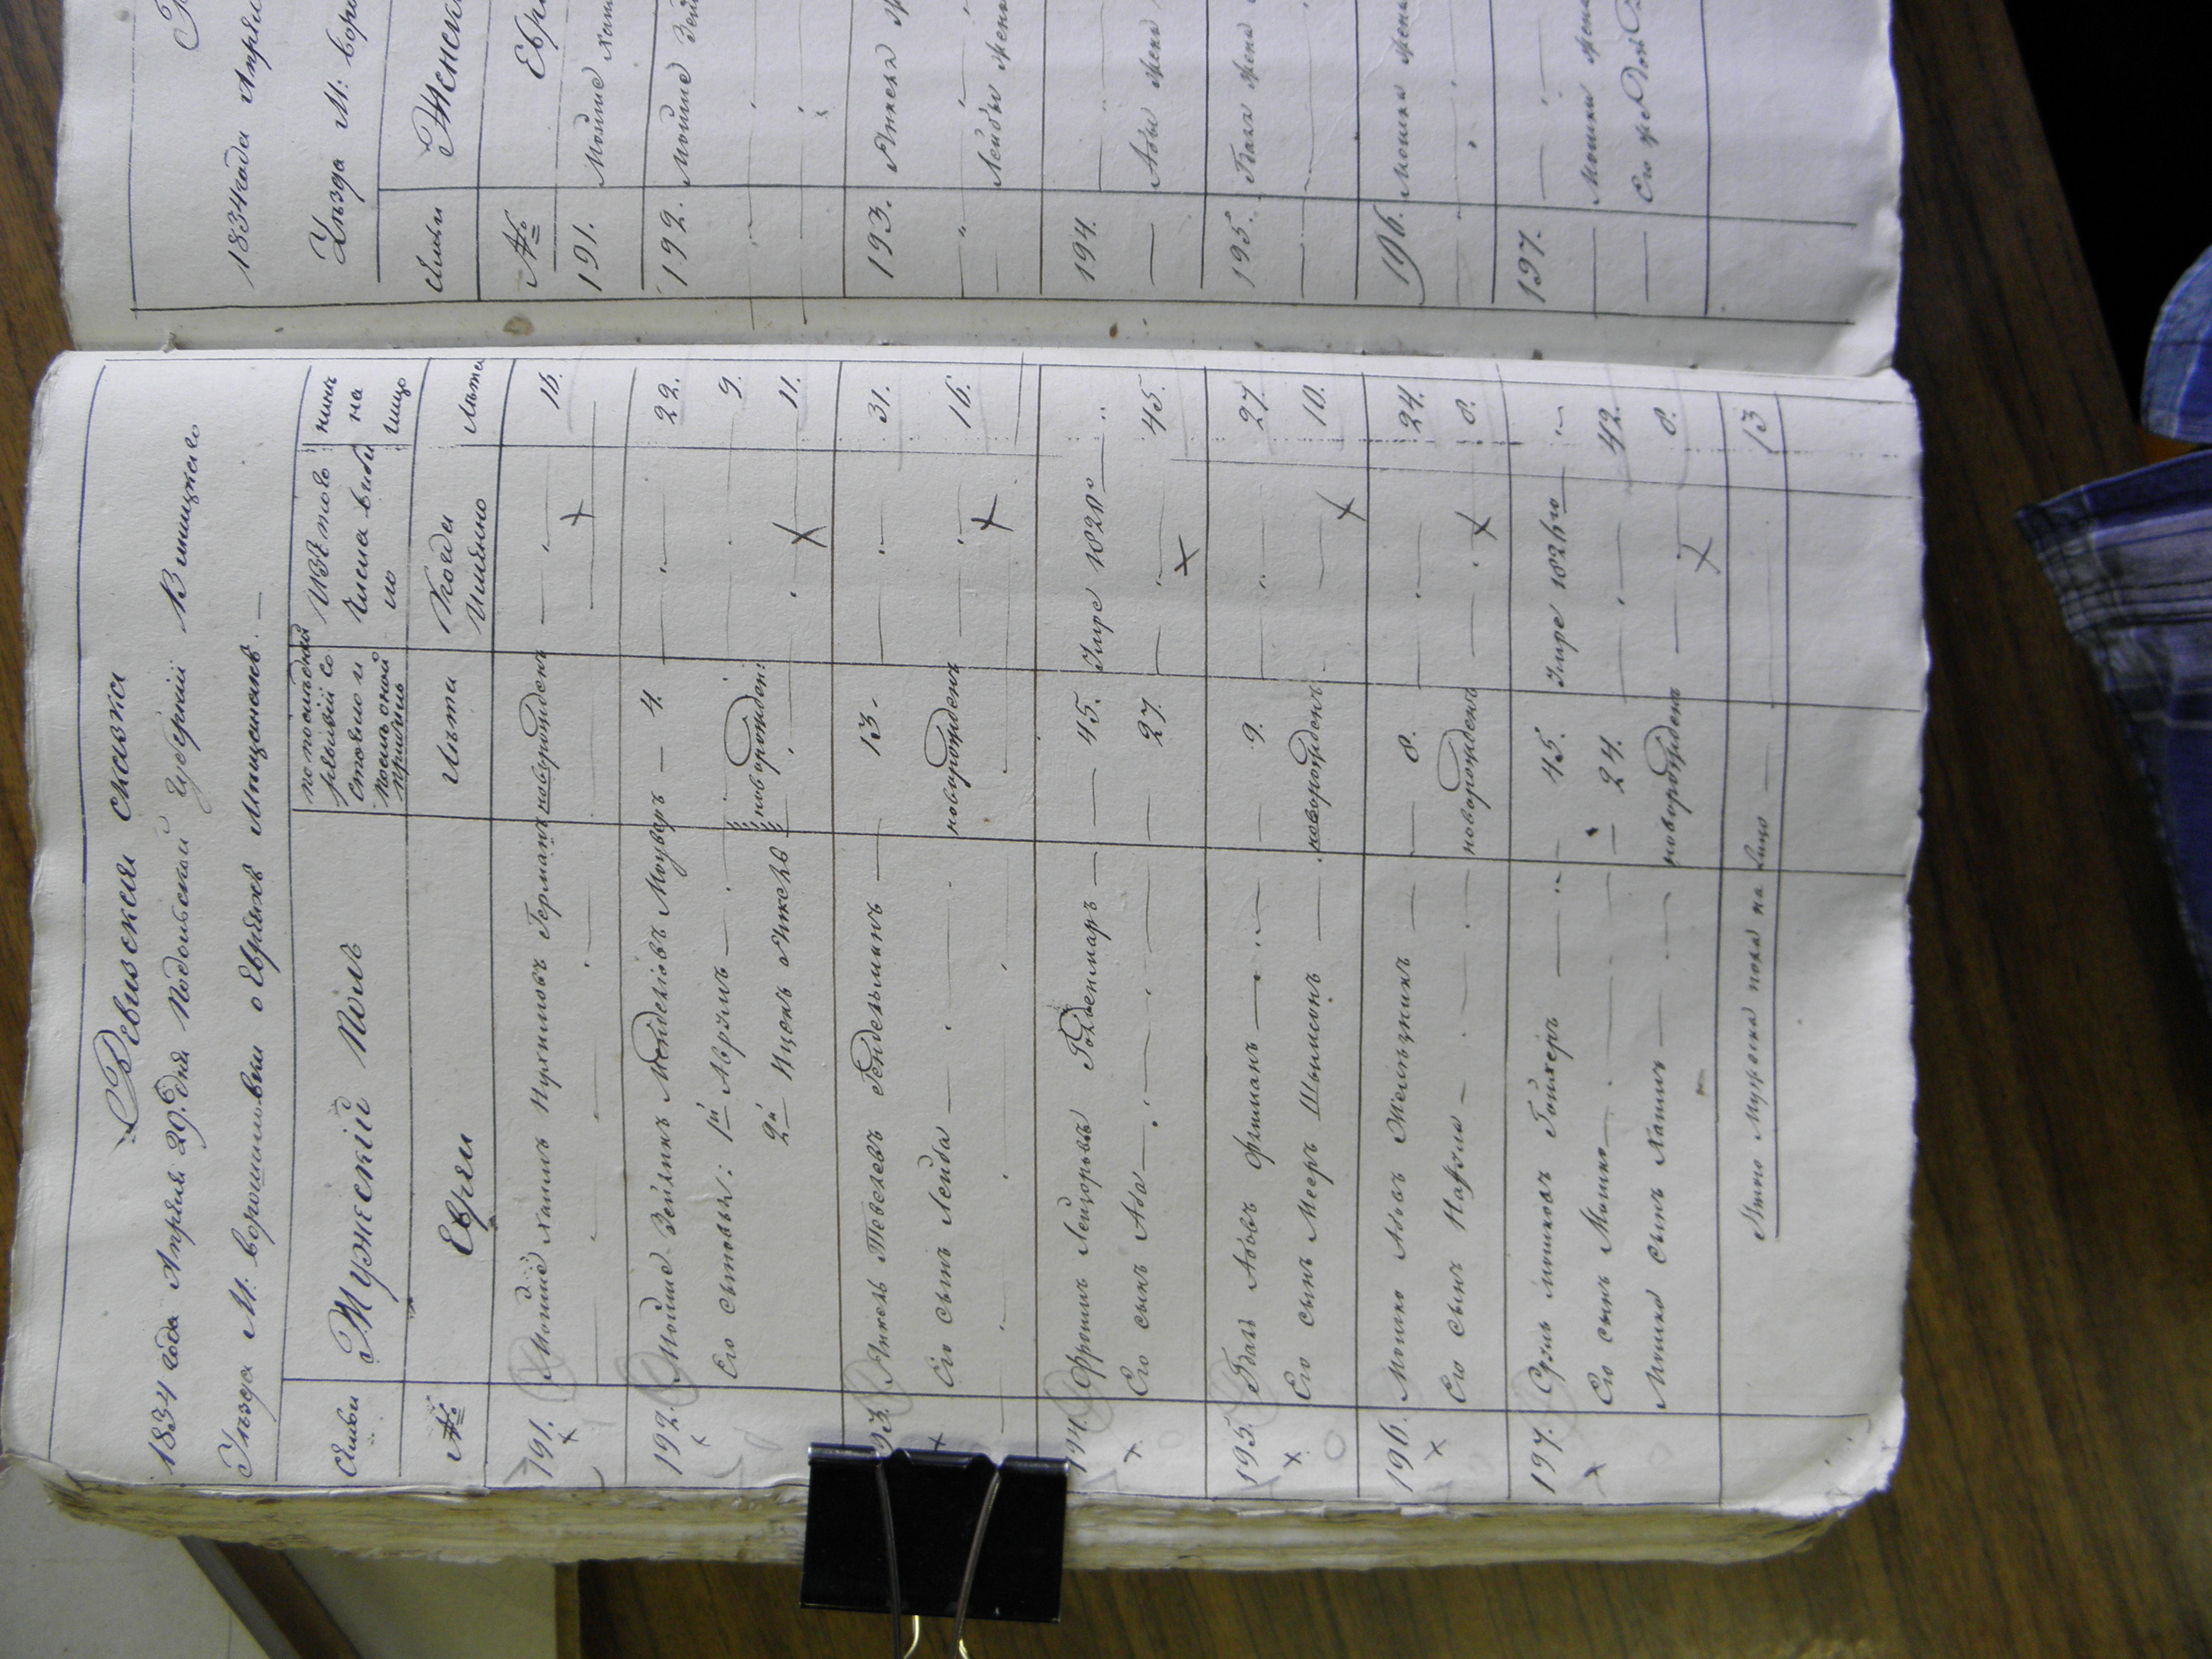 Ревизская сказка
1834 года Апреля 29. дня Подольской Губернии Винницкаго
Уезда М: Ворошиловки о Евреяхъ Мещанахъ. —
Семьи Мужескій Полъ по последней ревизіи со стояло и после оной прибыло Изъ того числа выбы ло ныне на лицо
№ Евреи Лета Когда Именно Лета
191. Мошие Хаимъ Нухимовъ Германъ новорожденъ — 16.
192. Мошие Зейликъ Менделіовъ Моуверъ — 4. — 22.
Его сыновья: 1й Аврумъ — новорожден: 9.
2й Ицекъ 11.
193. Анкель Тевелевъ Гендельманъ — 13. — 31.
Его сынъ Лейба — новорожденъ — 16.
194. Фроимъ Лейзоровъ — 45. Умре 1828го — "
Его сынъ Аба — 27. — 45.
195. Абовъ — 9. — 27.
Его сынъ Мееръ Шымсонъ — новорожденъ — 10.
196. Мошко Абовъ Железнякъ — 8. — 24.
Его сынъ — новорожденъ — 8.
197. Сруль Мошковъ — 45. Умре 1826го —
Его сынъ Мошко — 24. — 42.
Мошка сынъ Хаимъ — новорожденъ — 8.
Итого Мужеска пола на лицо — 13
1834 года Апрел
Уезда М: Воро
Семьи Женск
№ Евр
191. Мошие Хаим
192. Мошие Зей
193. Анкеля
" Лейбы жена
194.
— Абы жена
195. жена
196. Мошка жена
197. —
— Мошки жена
— Его же доч